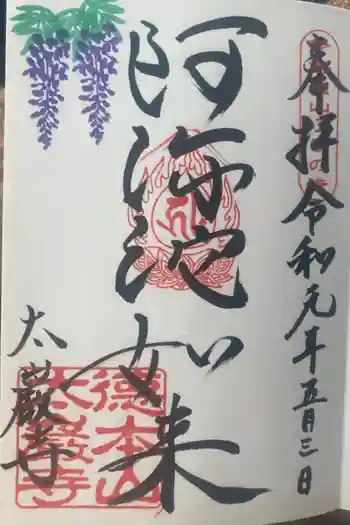 奉拝 令和元年五月三日
阿弥陀如来
太巌寺
徳本山
太巌寺